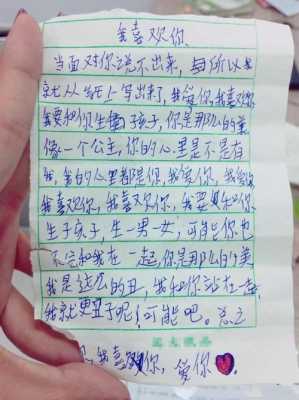 我喜欢你
当面对你说不出来，所以
就从纸上写出来了，我爱你，我喜欢你
我要和你生孩子，你是那么的美
像一个公主，你的心里是不是有
我，我的心里都是你，我爱你，我爱你
我喜欢你，我喜欢你，我要和你
生子孩子，生一男一女，可能你也
不会和我在一起，你是那么的美
我是这么的丑，我和你站在一起
我就更丑了呢！可能吧。总之
我喜欢你，爱你